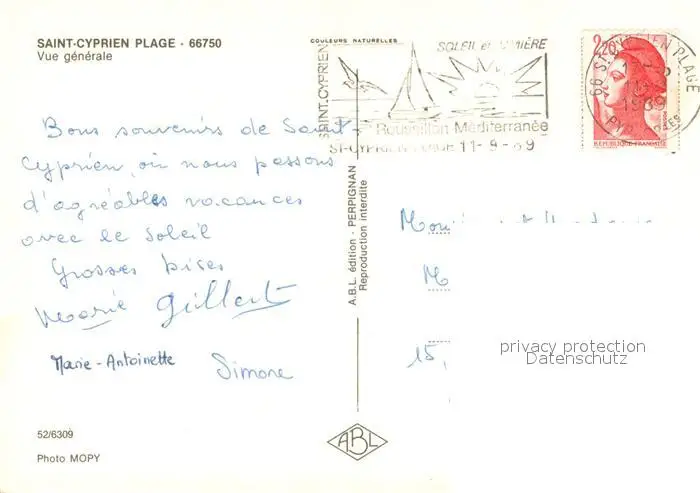 SAINT-CYPRIEN PLAGE - 66750
Vue générale
COULEURS NATURELLES
SAINT-CYPRIEN
SOLEIL et LUMIÈRE
Roussillon Méditerranée
ST-CYPRIEN PLAGE 11-9-89
2,20
66 ST CYPRIEN PLAGE
1989
REPUBLIQUE FRANÇAISE
Bons souvenirs de Saint
Cyprien, où nous passons
d'agréables vacances
avec le soleil
Grosses bises
Marie Gilbert
Marie-Antoinette Simone
A.B.L. édition - PERPIGNAN
Reproduction interdite
M
15,
privacy protection
Datenschutz
52/6309
Photo MOPY
ABL